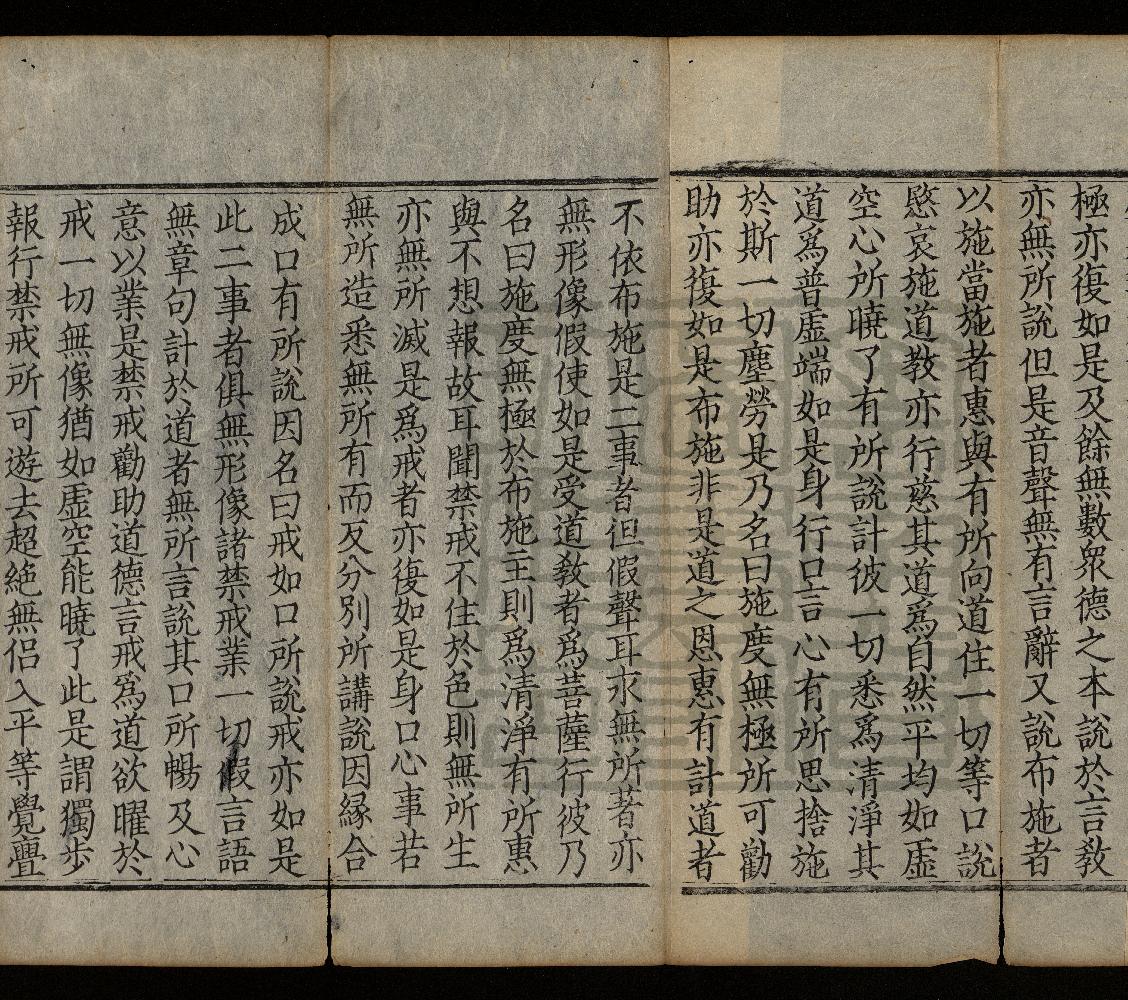 極亦復如是及餘無數衆德之本說於言教
亦無所說但是音聲無有言辭又說布施者
以施當施者惠與有所向道住一切等口說
愍哀施道教亦行慈其道爲自然平均如虛
空心所曉了有所說計彼一切悉爲清淨其
道爲普虛端如是身行口言心有所思捨施
於斯一切塵勞是乃名曰施度無極所可勸
助亦復如是布施非是道之恩惠有計道者
不依布施是二事者但假聲耳永無所著亦
無形像假使如是受道教者爲菩薩行彼乃
名曰施度無極於布施主則爲清淨有所惠
與不想報故耳聞禁戒不住於色則無所生
亦無所滅是爲戒者亦復如是身口心事若
無所造悉無所有而反分別所講說因緣合
成口有所說因名曰戒如口所說戒亦如是
此二事者俱無形像諸禁戒業一切假言語
無章句計於道者無所言說其口所暢及心
意以業是禁戒勸助道德言戒爲道欲曜於
戒一切無像猶如虛空能曉了此是謂獨步
報行禁戒所可遊去超絕無侶入平等覺亹